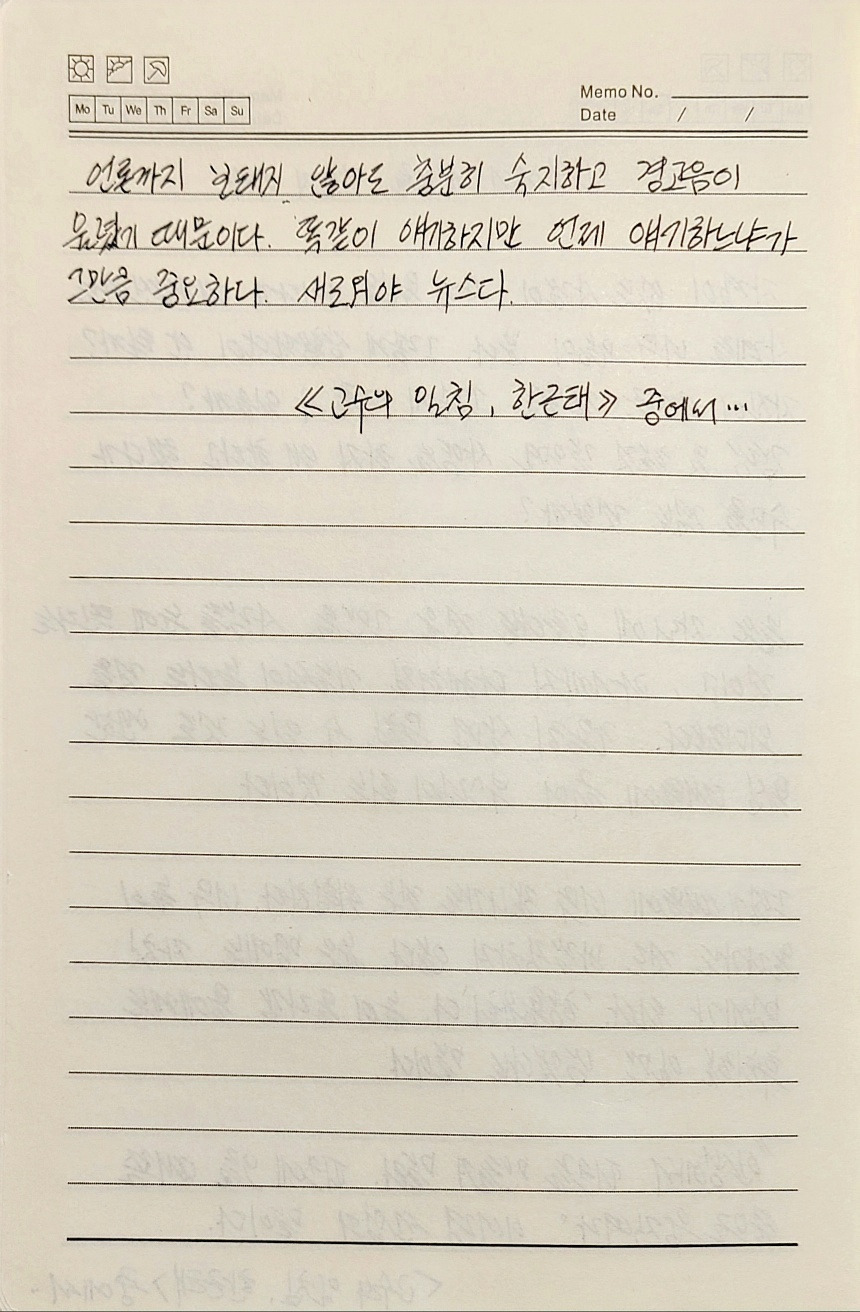 Mo Tu We Th Fr Sa Su
Memo No.
Date / /
언론까지 보태지 않아도 충분히 숙지하고 경고음이
울렸기 때문이다. 똑같이 얘기하지만 언제 얘기하느냐가
그만큼 중요하다. 새로워야 뉴스다.
≪고수의 일침, 한근태≫ 중에서...